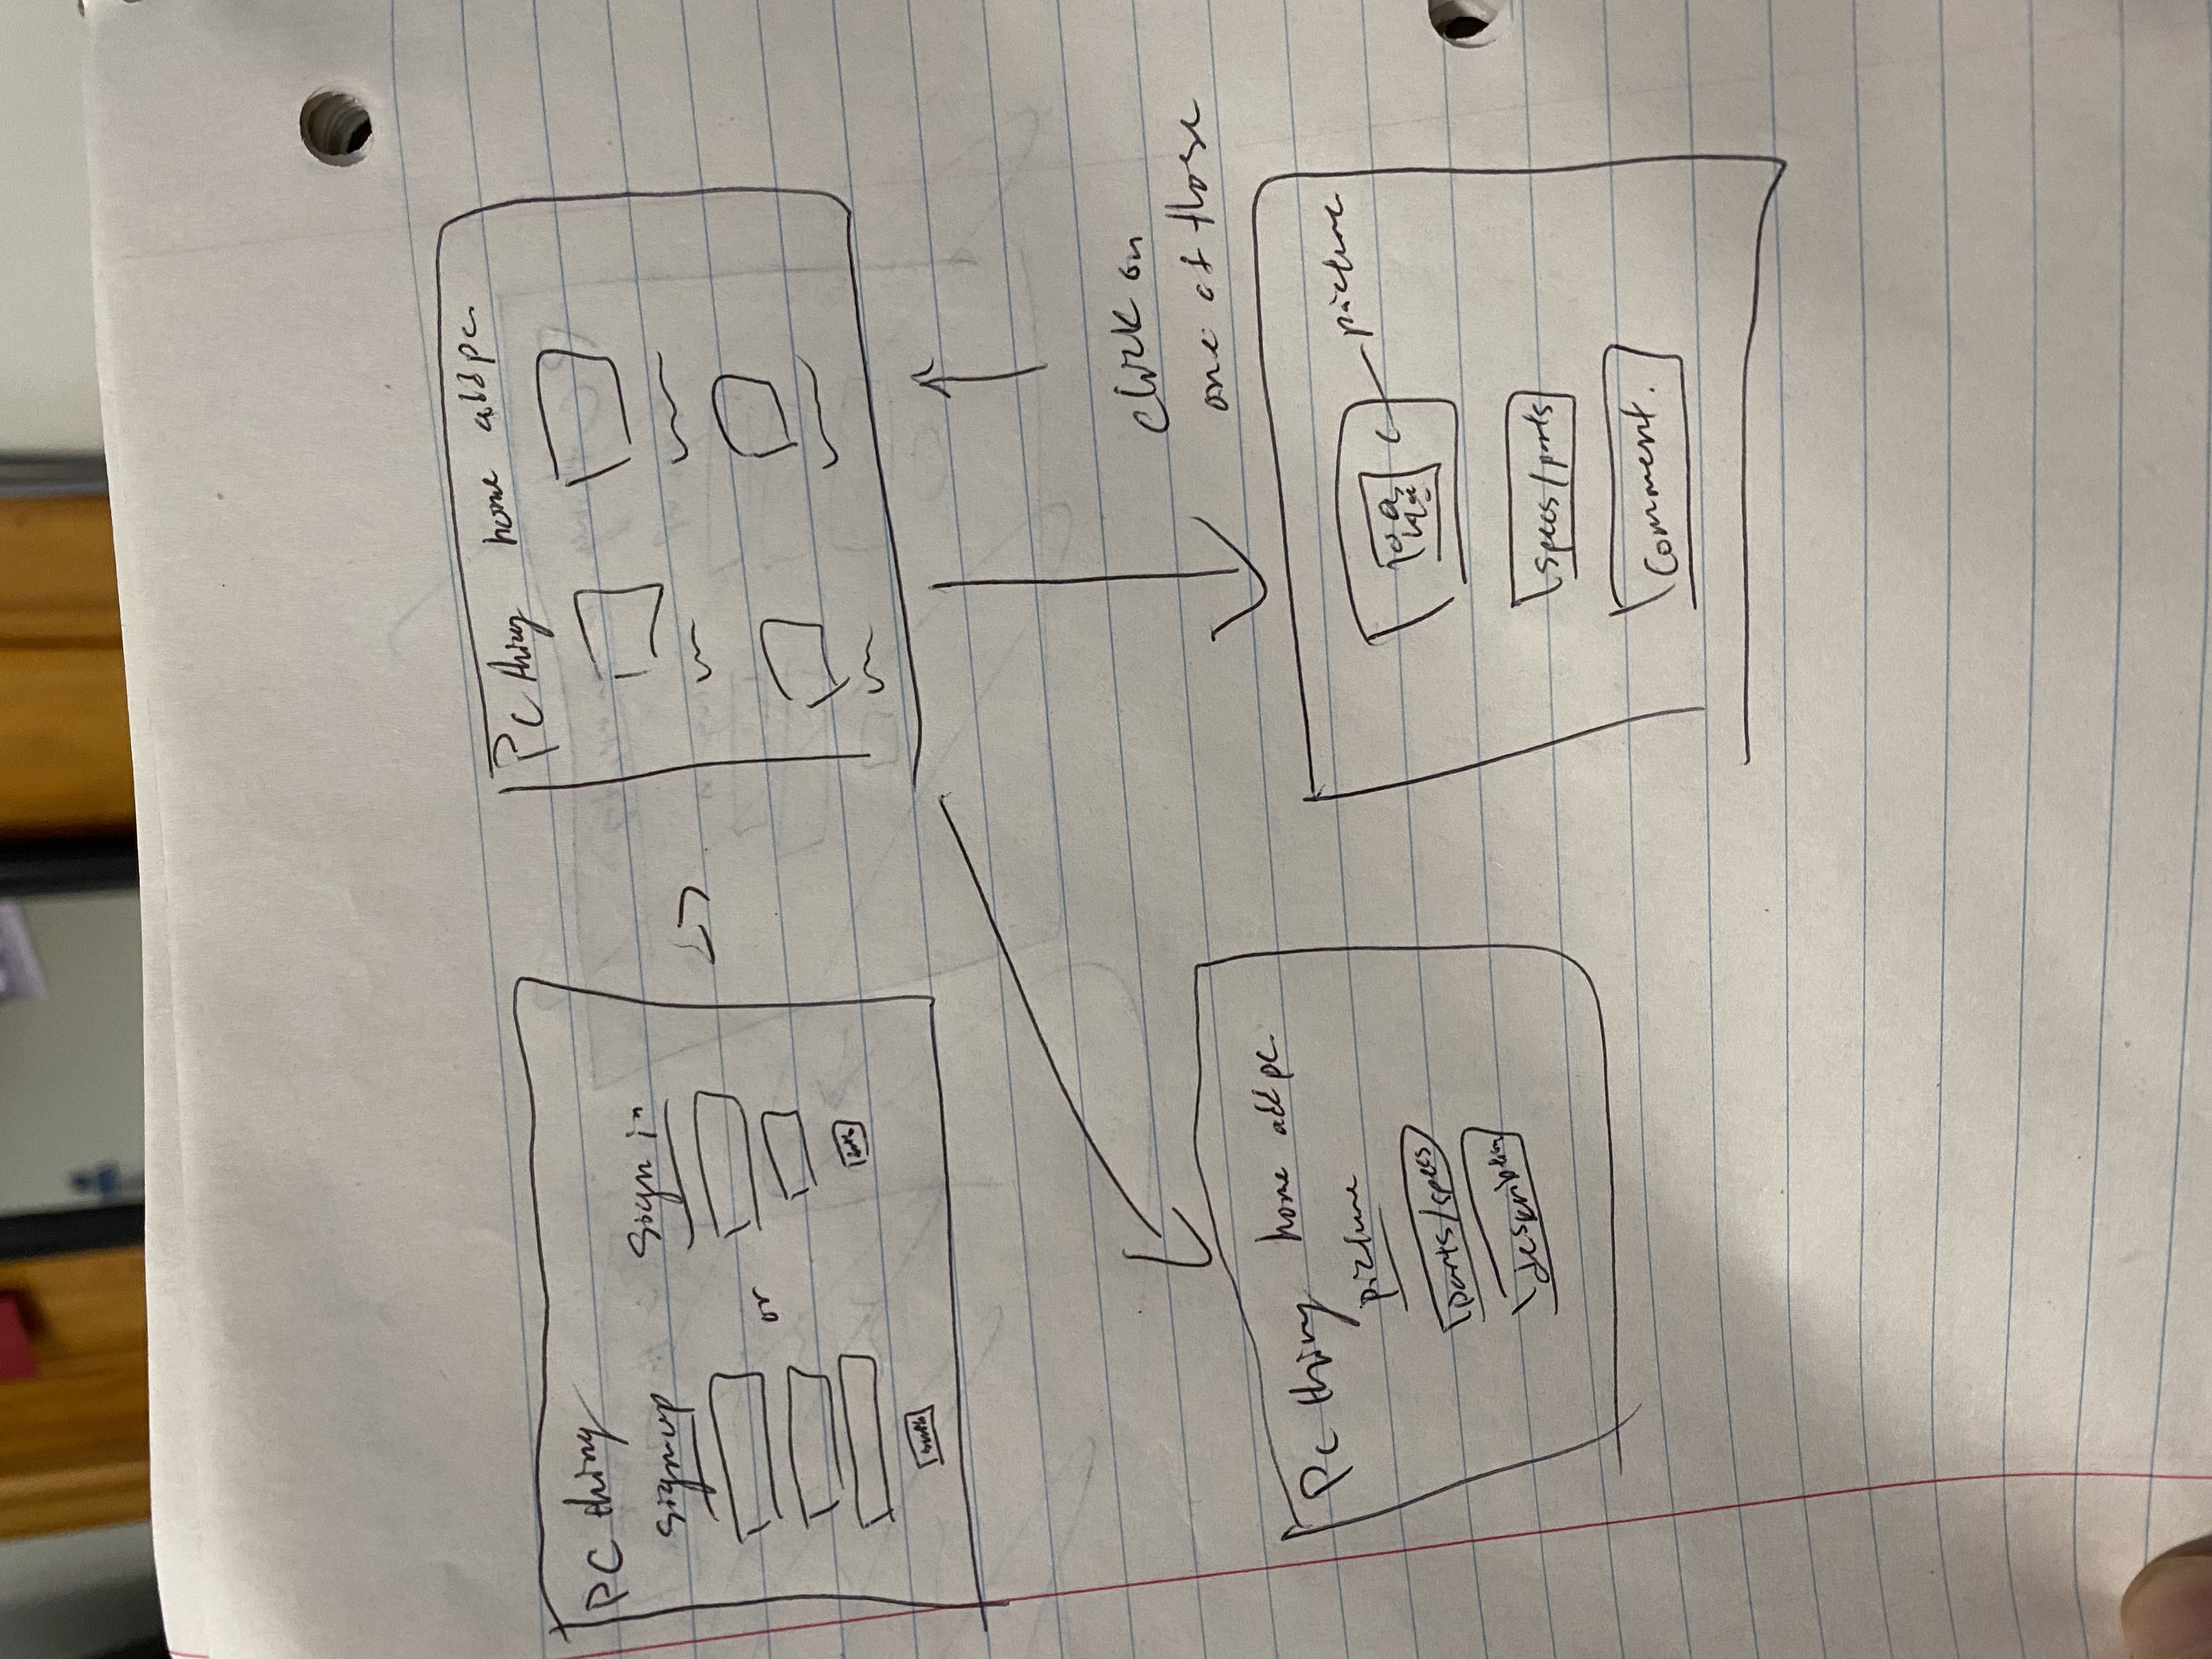 PC thing
signup
Sign in
or
Pc thing home add pc
click on
one of those
Pc thing home add pc
picture
parts/specs
description
picture
specs/parts
Comment.